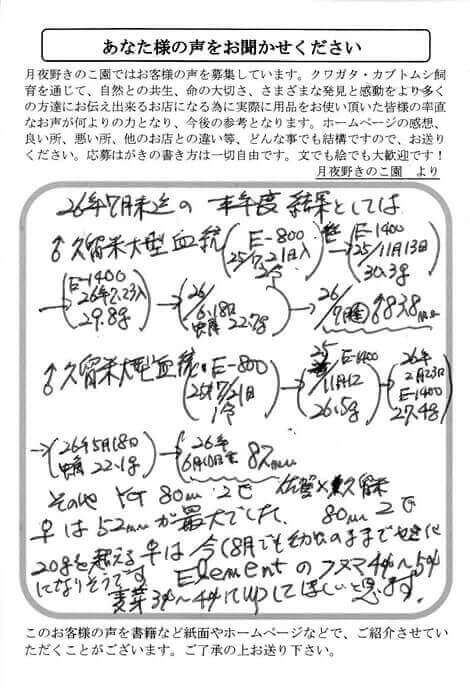 あなた様の声をお聞かせください
月夜野きのこ園ではお客様の声を募集しています。クワガタ・カブトムシ飼
育を通じて、自然との共生、命の大切さ、さまざまな発見と感動をより多く
の方達にお伝え出来るお店になる為に実際に用品をお使い頂いた皆様の率直
なお声が何よりの力となり、今後の参考となります。ホームページの感想、
良い所、悪い所、他のお店との違い等、どんな事でも結構ですので、お送り
ください。応募はがきの書き方は一切自由です。文でも絵でも大歓迎です！
月夜野きのこ園 より
26年7月末迄の本年度結果としては
♂久留米大型血統 (E-800 25/7.21日入 2令) (E-1400 25/11月13日 30.3g)
→(E-1400 26年2.23入 29.8g) →(26/6.18日 22.7g) →26/ 83.8
♂久留米大型血統・(E-800 25年7/21日) →(25 E-1400 11月12 26.5g) →(26年 2月23日 E-1400 27.4g)
→(26年5月18日 22.1g) →(26年 6月10日 82mm
その他 80mm 2♂ 佐賀×久留米 80mm 2♂
♀は52mmが最大でした。
20gを超える♀は今(8月でも幼虫のままで
になりそうです Elementのフスマ4%〜5%
麦芽3%〜4%にupしてほしいと思います。
このお客様の声を書籍など紙面やホームページなどで、ご紹介させてい
ただくことがございます。ご了承の上お送り下さい。